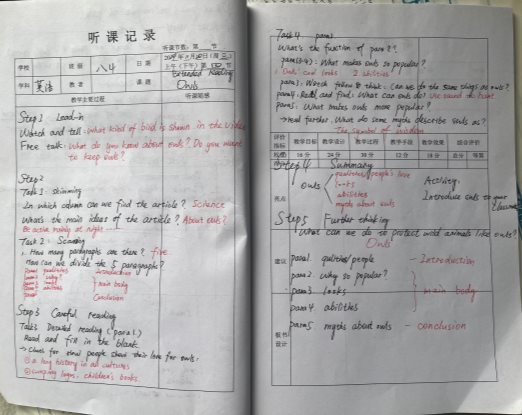 听课记录
听课节数：第 节
学校 班级 八4 日期
上午（下午）第 四 节
学科 英语 教者 课题 Extended Reading
Owls
教学主要过程 听课随感
Step 1 Lead-in
Watch and tell: what kind of bird is shown in the video
Free talk: What do you know about owls? Do you want
to keep owls?
Step 2
Task 1 skimming
In which column can we find the article? Science
What's the main ideas of the article? About owls?
Be active mainly at night
Task 2: Scanning
1. How many paragraphs are there? five
How can we divide the 5 paragraphs?
Introduction
main body
Conclusion
Step 3 Careful reading
Task3 Detailed reading (para 1.)
Read and fill in the blank.
→ Clues for people show their love for owls.
① a long history in all cultures
② logos, children's books
Task 4 para
What's the function of para 2?
What makes owls so popular?
looks abilities
para3: Watch follow & think: Can we do the same things as owls?
para4: Read and find: What can owls do?
para5: What makes owls more popular?
→ read further. What do some myths describe owls as?
The symbol of wisdom
评价指标 教学目标 教学设计 教学过程 教学手段 教学效果 综合评价
16 分 24 分 30 分 12 分 18 分 总分 等第
Step 4 Summary
owls
people's love
looks
abilities
myths about owls
Activity:
Introduce owls to your
classmates
亮点
Step 5 Further thinking
What can we do to protect wild animals like owls?
Owls
建议
para1. people — Introduction
para2. why so popular?
para3. looks
main body
para4. abilities
para5 myths about owls — conclusion
板书设计